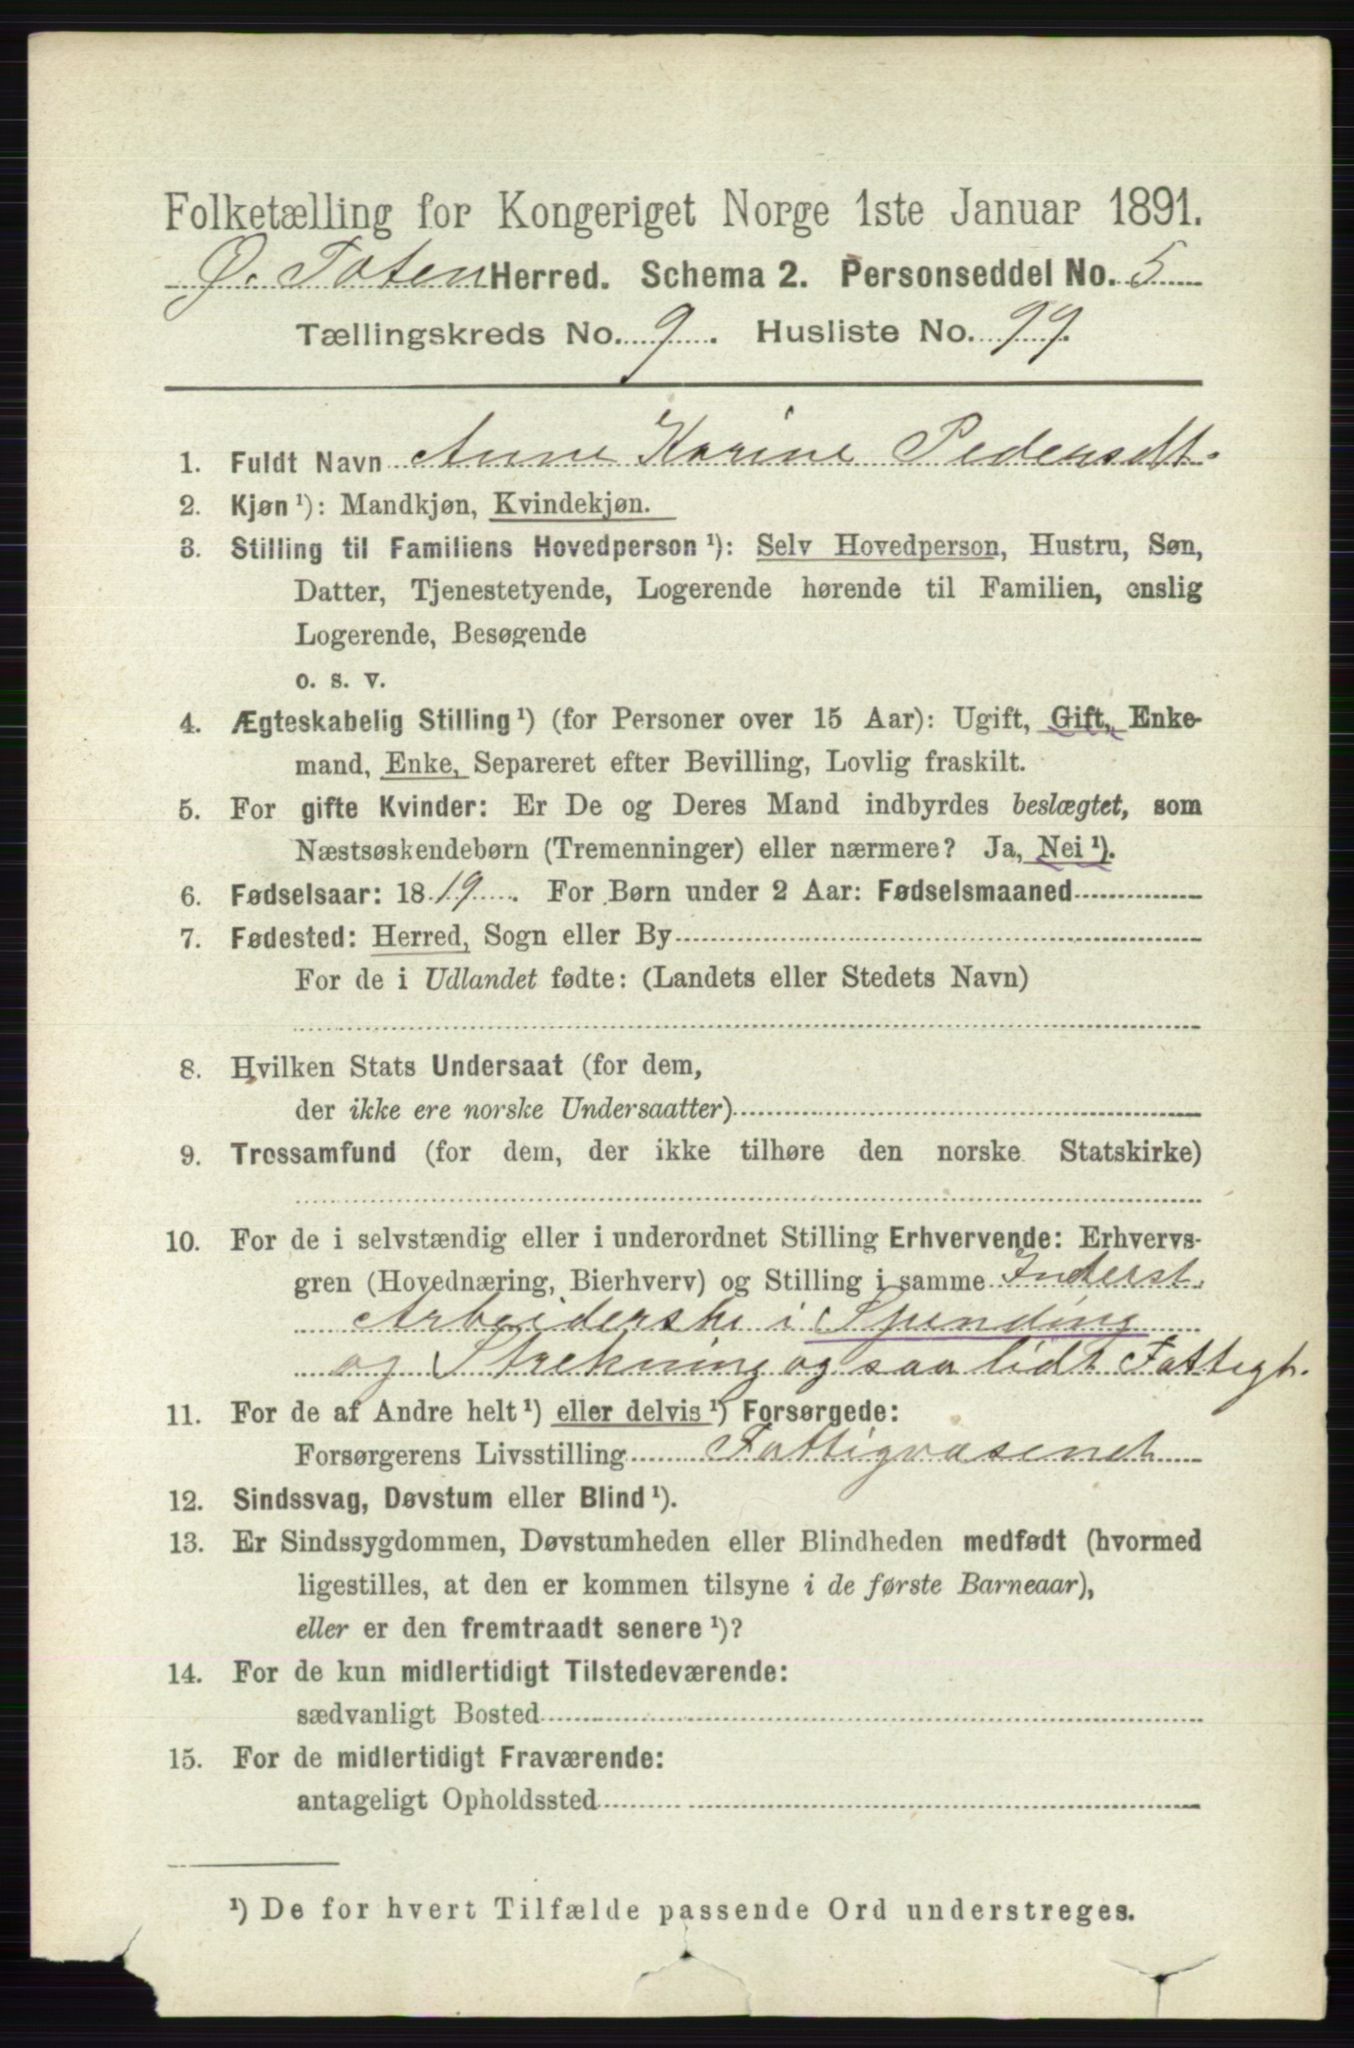 Folketælling for Kongeriget Norge 1ste Januar 1891.
Ø. Toten Herred. Schema 2. Personseddel No. 5
Tællingskreds No. 9. Husliste No. 99.
1. Fuldt Navn Anne Karine Pedersdt.
2. Kjøn ¹): Mandkjøn, Kvindekjøn.
3. Stilling til Familiens Hovedperson ¹): Selv Hovedperson, Hustru, Søn,
Datter, Tjenestetyende, Logerende hørende til Familien, enslig
Logerende, Besøgende
o. s. v.
4. Ægteskabelig Stilling ¹) (for Personer over 15 Aar): Ugift, Gift, Enke-
mand, Enke, Separeret efter Bevilling, Lovlig fraskilt.
5. For gifte Kvinder: Er De og Deres Mand indbyrdes beslægtet, som
Næstsøskendebørn (Tremenninger) eller nærmere? Ja, Nei ¹).
6. Fødselsaar: 1819. For Børn under 2 Aar: Fødselsmaaned
7. Fødested: Herred, Sogn eller By
For de i Udlandet fødte: (Landets eller Stedets Navn)
8. Hvilken Stats Undersaat (for dem,
der ikke ere norske Undersaatter)
9. Trossamfund (for dem, der ikke tilhøre den norske Statskirke)
10. For de i selvstændig eller i underordnet Stilling Erhvervende: Erhvervs-
gren (Hovednæring, Bierhverv) og Stilling i samme Inderst.
Arbeiderske i Spinding
og Strekning og saa lidt Fattigh.
11. For de af Andre helt ¹) eller delvis ¹) Forsørgede:
Forsørgerens Livsstilling Fattigvæsenet
12. Sindssvag, Døvstum eller Blind ¹).
13. Er Sindssygdommen, Døvstumheden eller Blindheden medfødt (hvormed
ligestilles, at den er kommen tilsyne i de første Barneaar),
eller er den fremtraadt senere ¹)?
14. For de kun midlertidigt Tilstedeværende:
sædvanligt Bosted
15. For de midlertidigt Fraværende:
antageligt Opholdssted
¹) De for hvert Tilfælde passende Ord understreges.